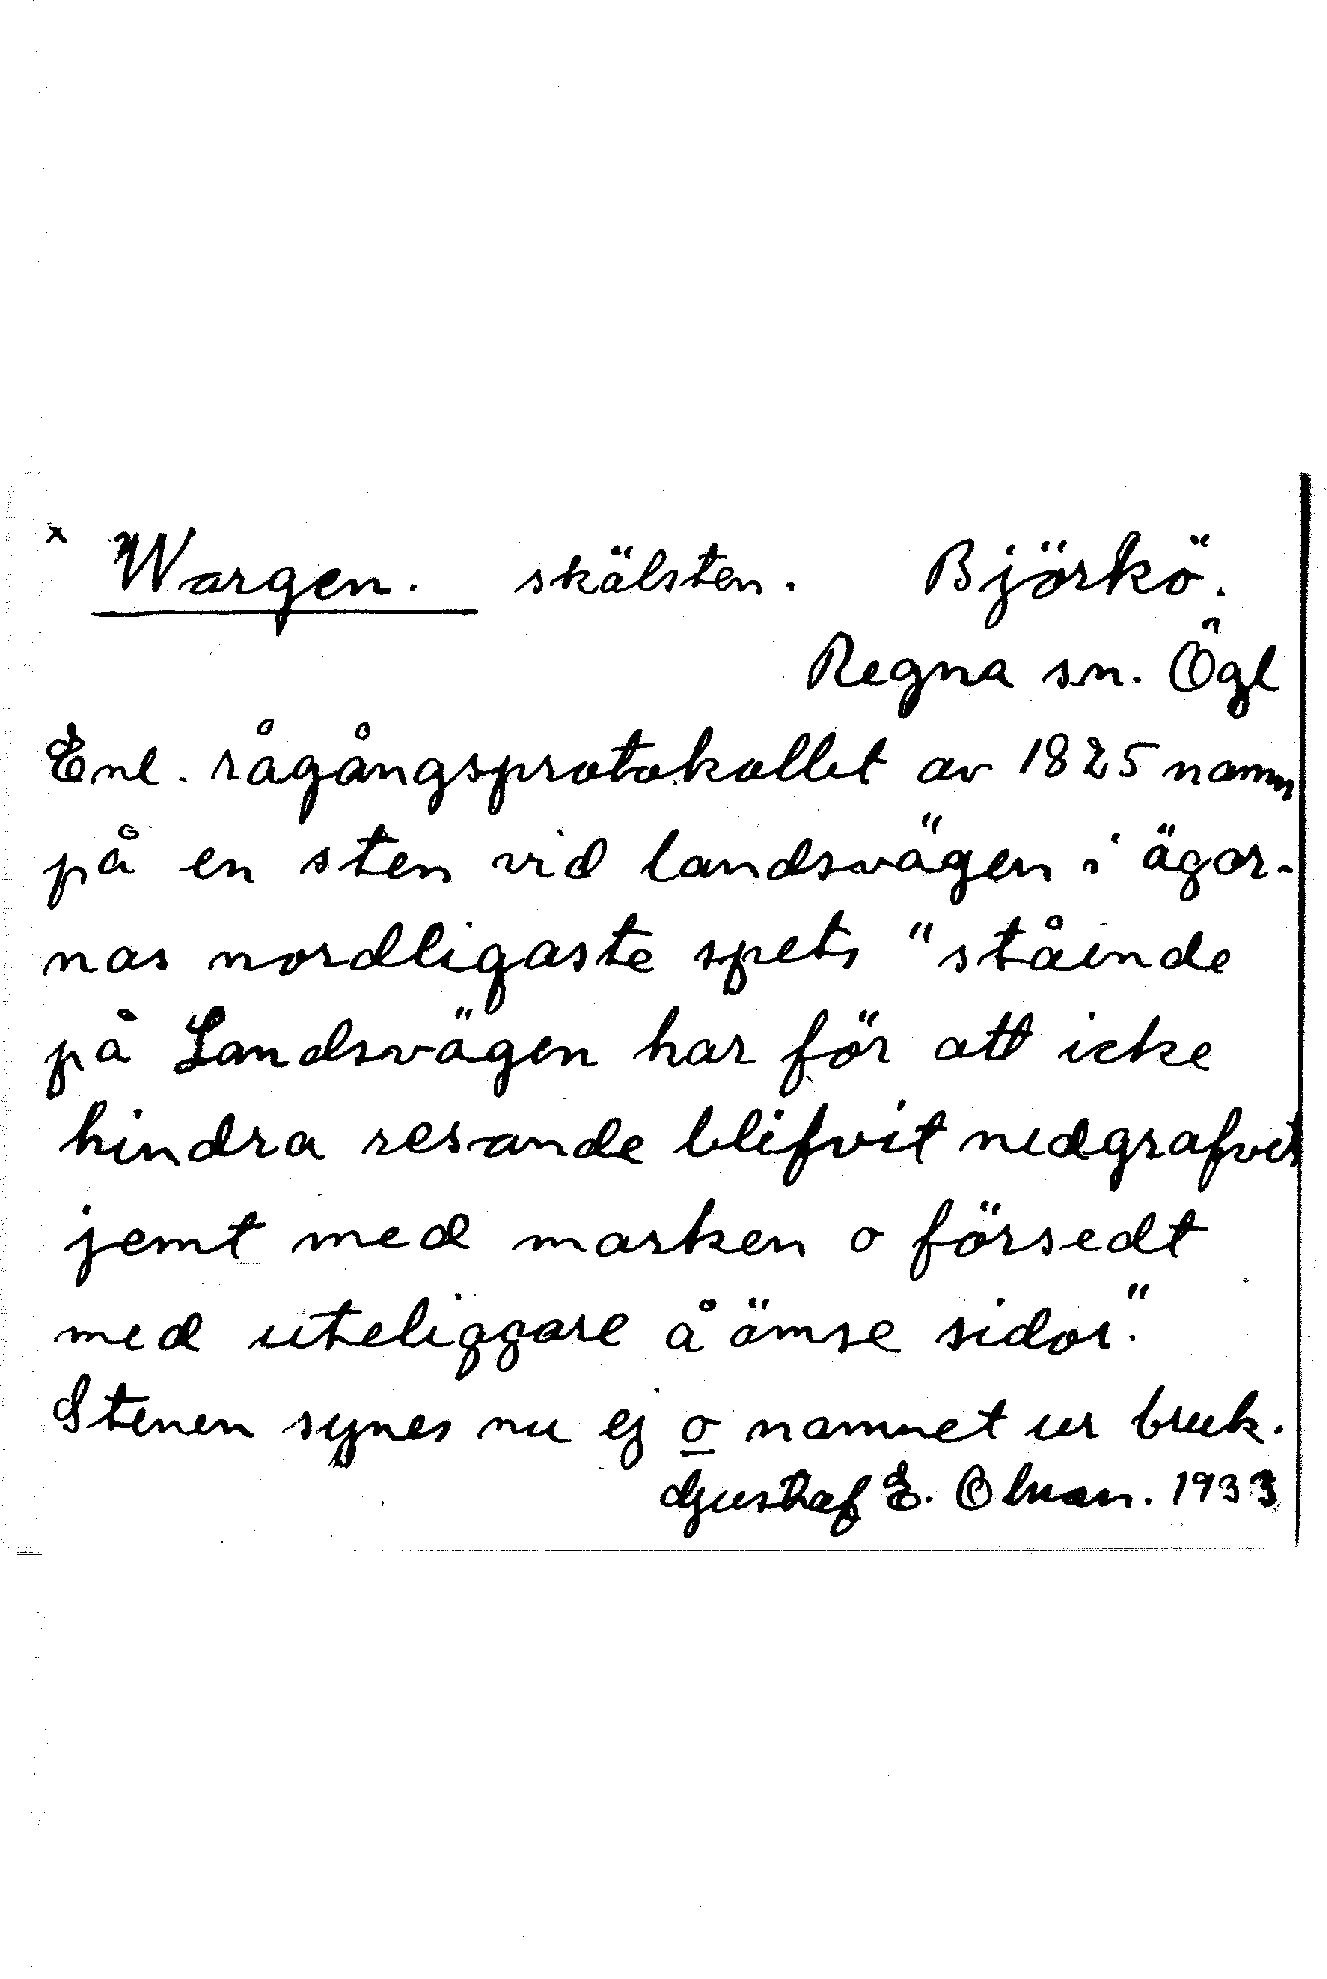 x Wargen. skälsten. Björkö.
Regna sn. Ögl
Enl. rågångsprotokollet av 1825 namn
på en sten vid landsvägen i ägor-
nas nordligaste spets "stående
på Landsvägen har för att icke
hindra resande blifvit nedgrafvit
jemt med marken o försedt
med uteliggare å ömse sidor."
Stenen synes nu ej o namnet ur bruk.
Gustaf E. Olman. 1933